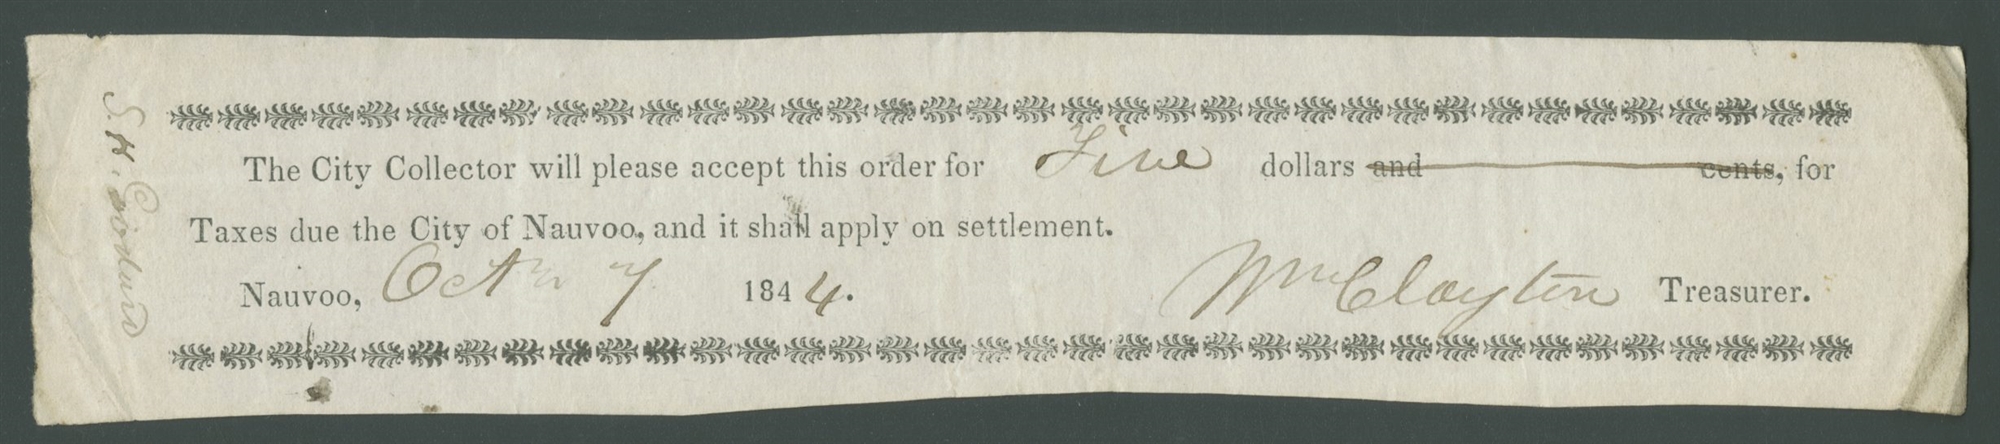 The City Collector will please accept this order for Five dollars and cents, for
Taxes due the City of Nauvoo, and it shall apply on settlement.
Nauvoo, Octr 7 1844. Wm Clayton Treasurer.
S. H.